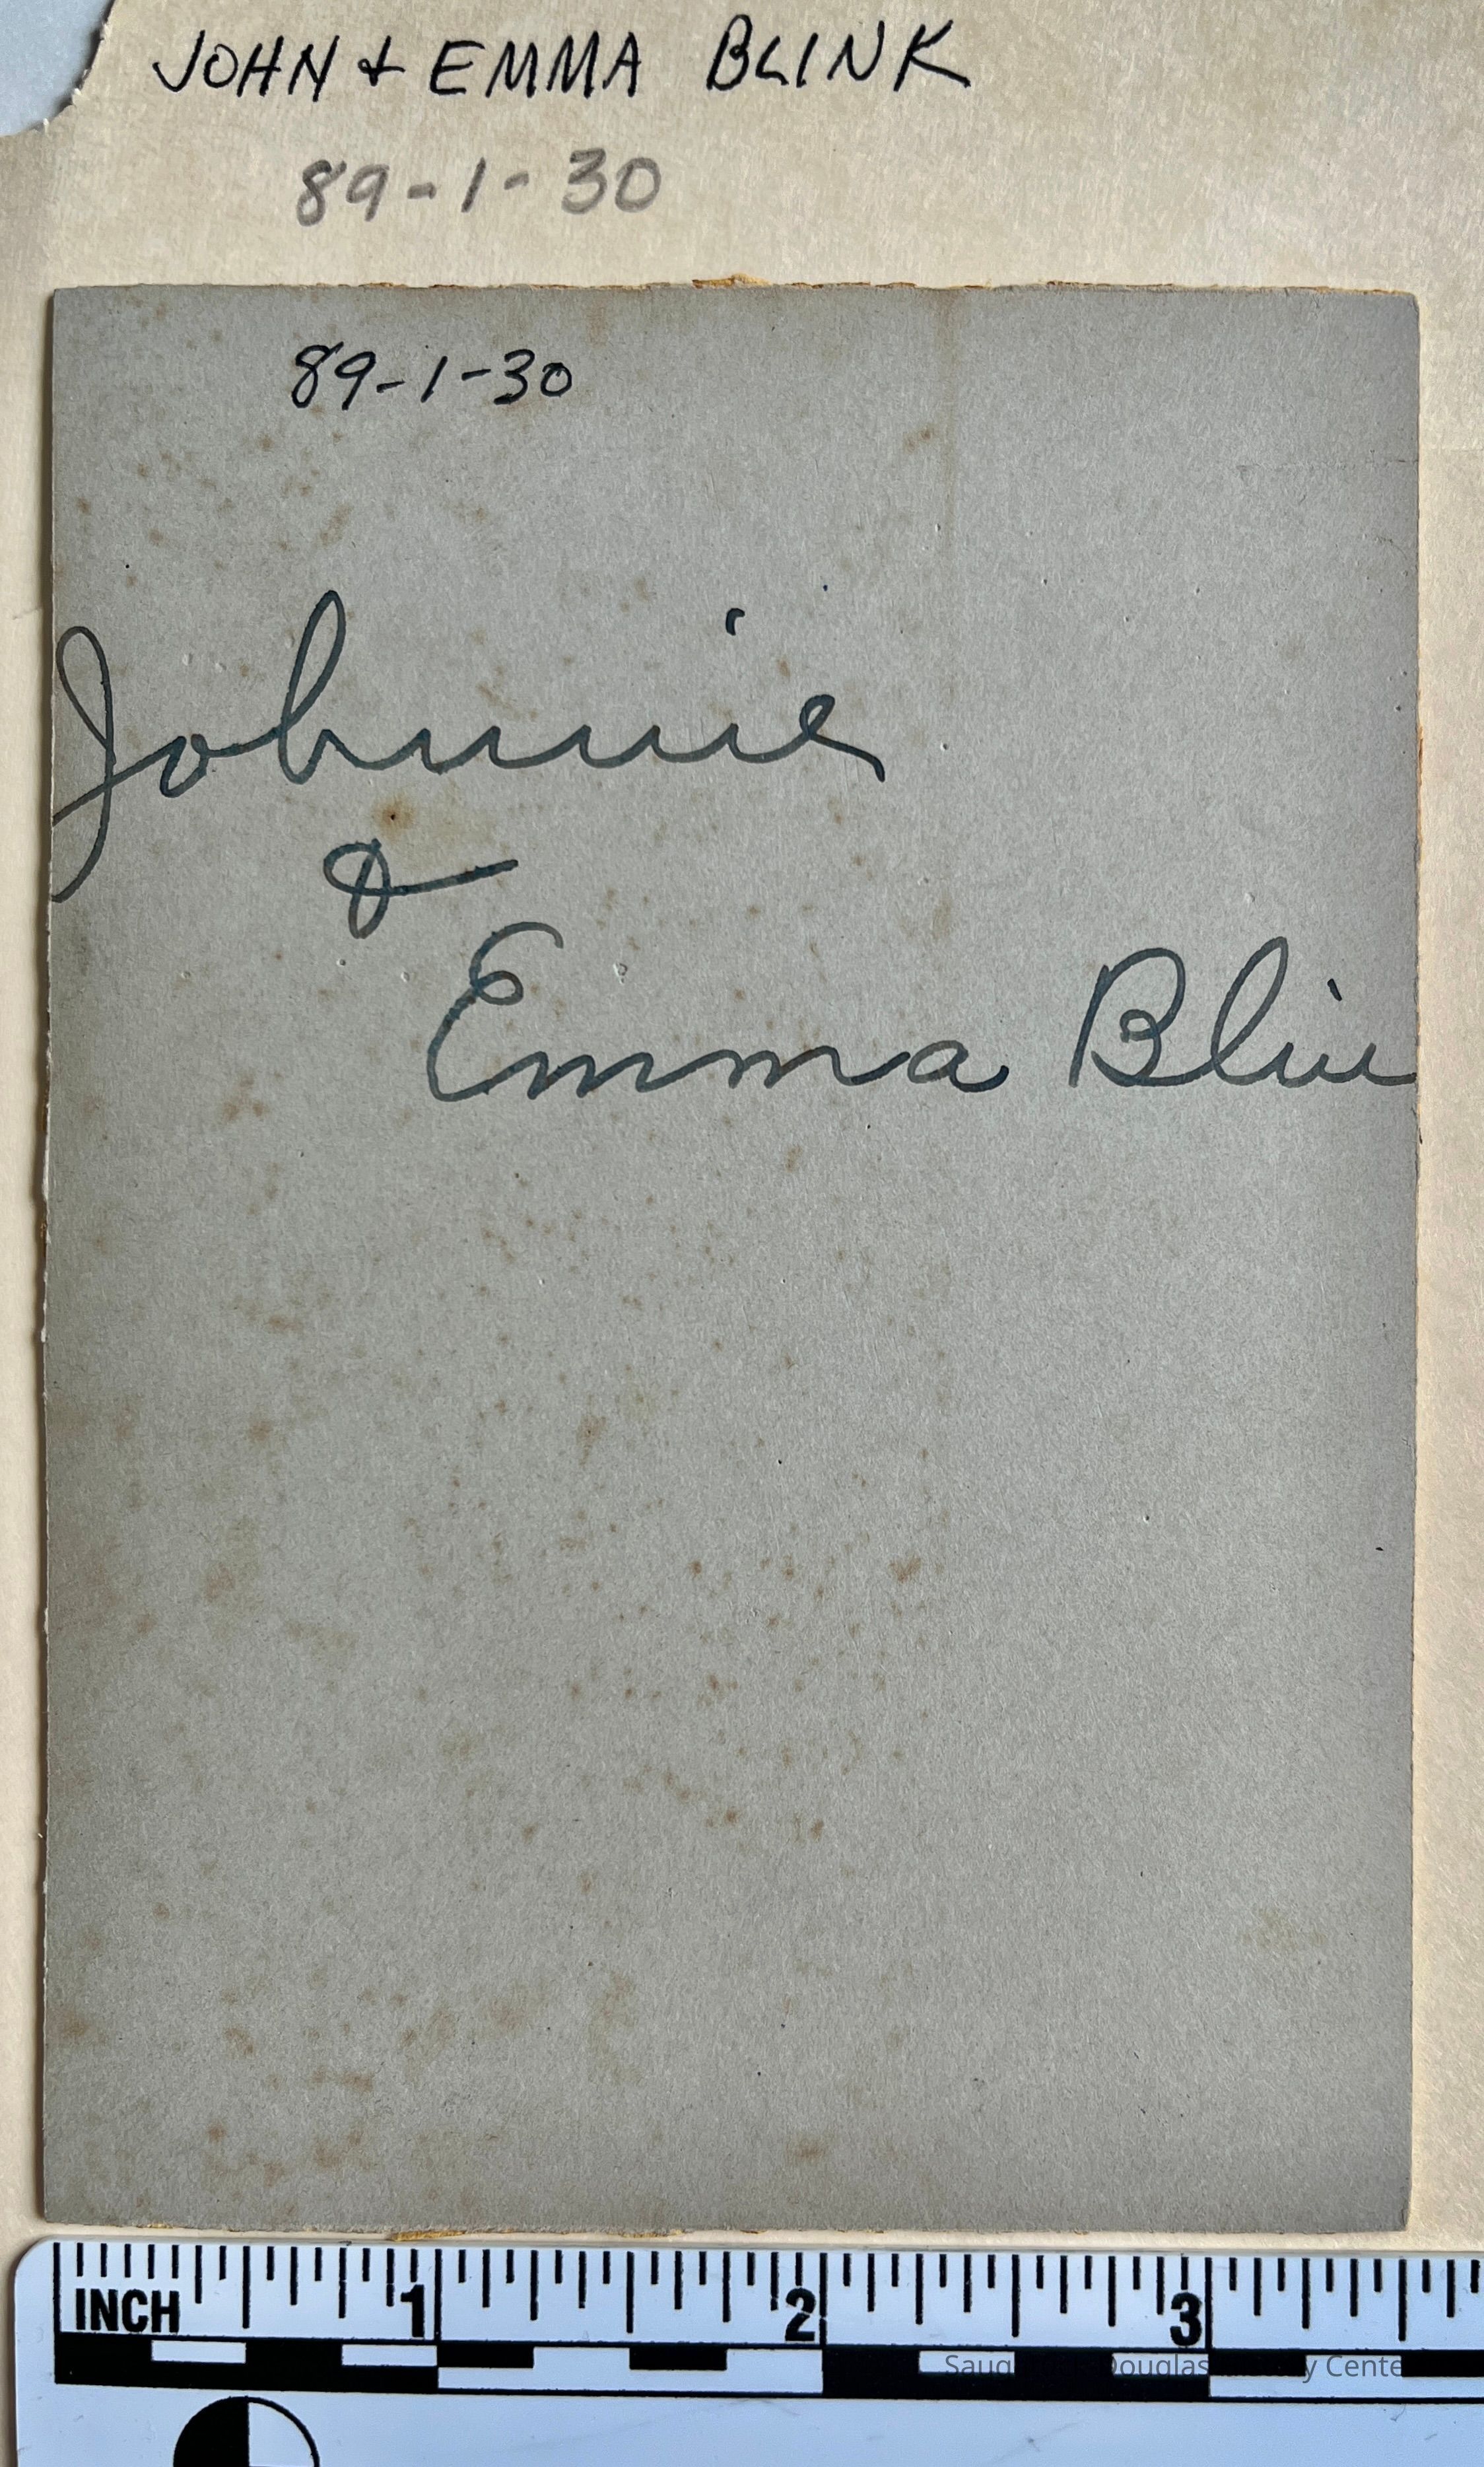 JOHN & EMMA BLINK
89-1-30
89-1-30
Johnnie
&
Emma Blin
INCH 1 2 3
Saug Douglas y Cente